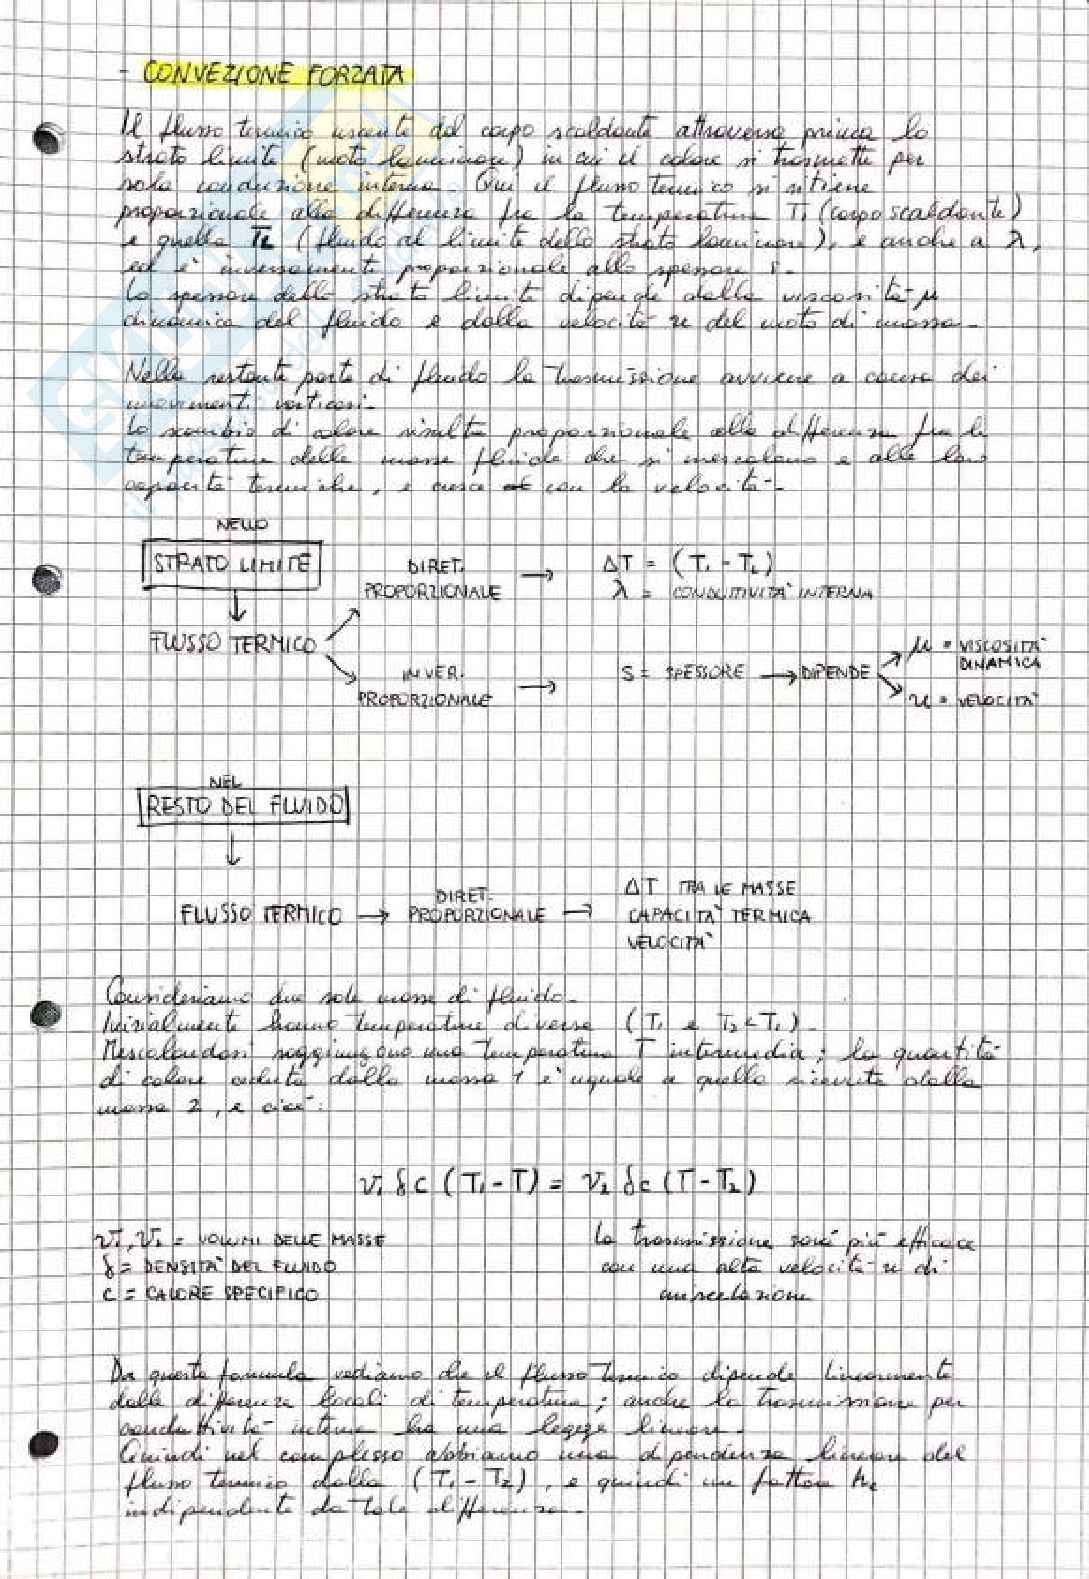 - CONVEZIONE FORZATA
Il flusso termico uscente dal corpo scaldante attraversa prima lo
strato limite (moto laminare) in cui il calore si trasmette per
sola conduzione interna. Qui il flusso termico si ritiene
proporzionale alla differenza fra la temperatura T₁ (corpo scaldante)
e quella TL (fluido al limite dello strato laminare), e anche a λ,
ed è inversamente proporzionale allo spessore s.
Lo spessore dello strato limite dipende dalla viscosità μ
dinamica del fluido e dalla velocità u del moto di massa.
Nella restante parte di fluido la trasmissione avviene a causa dei
movimenti vorticosi.
Lo scambio di calore risulta proporzionale alla differenza fra le
temperature delle masse fluide che si mescolano e alle loro
capacità termiche, e cresce con la velocità.
NELLO
STRATO LIMITE
FLUSSO TERMICO
DIRET. PROPORZIONALE → ΔT = (T₁ - TL)
λ = CONDUTTIVITÀ INTERNA
INVER. PROPORZIONALE → S = SPESSORE → DIPENDE
μ = VISCOSITÀ DINAMICA
u = VELOCITÀ
NEL
RESTO DEL FLUIDO
FLUSSO TERMICO → DIRET. PROPORZIONALE → ΔT TRA LE MASSE
CAPACITÀ TERMICA
VELOCITÀ
Consideriamo due sole masse di fluido.
Inizialmente hanno temperature diverse (T₁ e T₂<T₁).
Mescolandosi raggiungono una temperatura T intermedia; la quantità
di calore ceduta dalla massa 1 è uguale a quella ricevuta dalla
massa 2, e cioè:
v₁ δc (T₁ - T) = v₂ δc (T - T₂)
v₁, v₂ = VOLUMI DELLE MASSE
δ = DENSITÀ DEL FLUIDO
c = CALORE SPECIFICO
La trasmissione sarà più efficace
con una alta velocità u di
miscelazione
Da questa formula vediamo che il flusso termico dipende linearmente
dalle differenze locali di temperatura; anche la trasmissione per
conduttività interna ha una legge lineare.
Quindi nel complesso abbiamo una dipendenza lineare del
flusso termico dalla (T₁ - T₂), e quindi un fattore hc
indipendente da tale differenza.